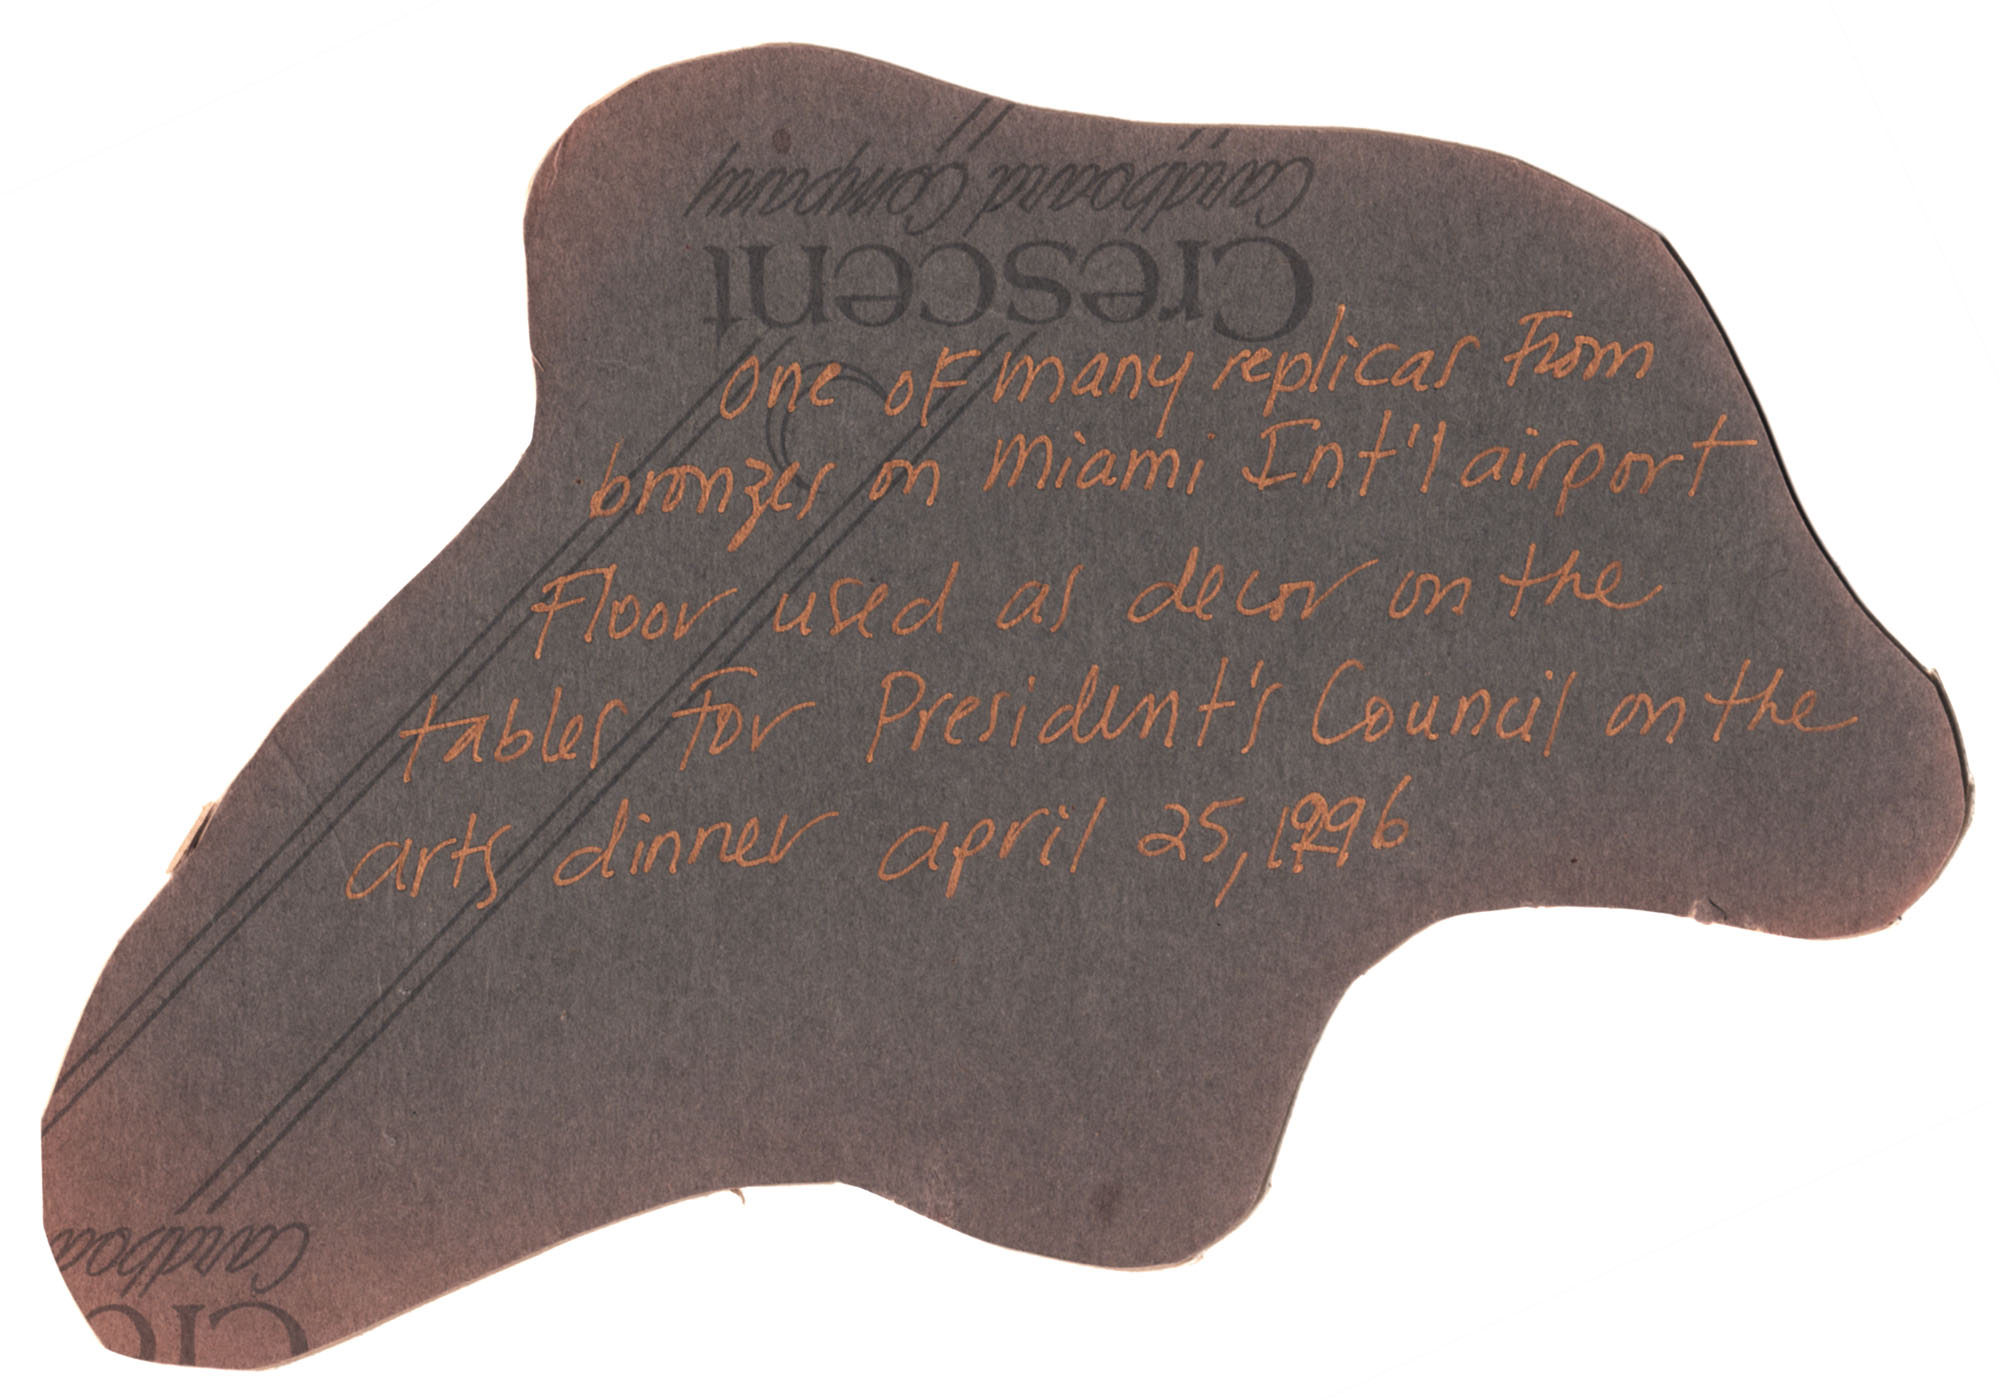 Cardboard Company
Crescent
one of many replicas From
bronzes on Miami Int'l airport
Floor used as decor on the
tables For President's Council on the
arts dinner april 25, 1996
Cardboa
Cre